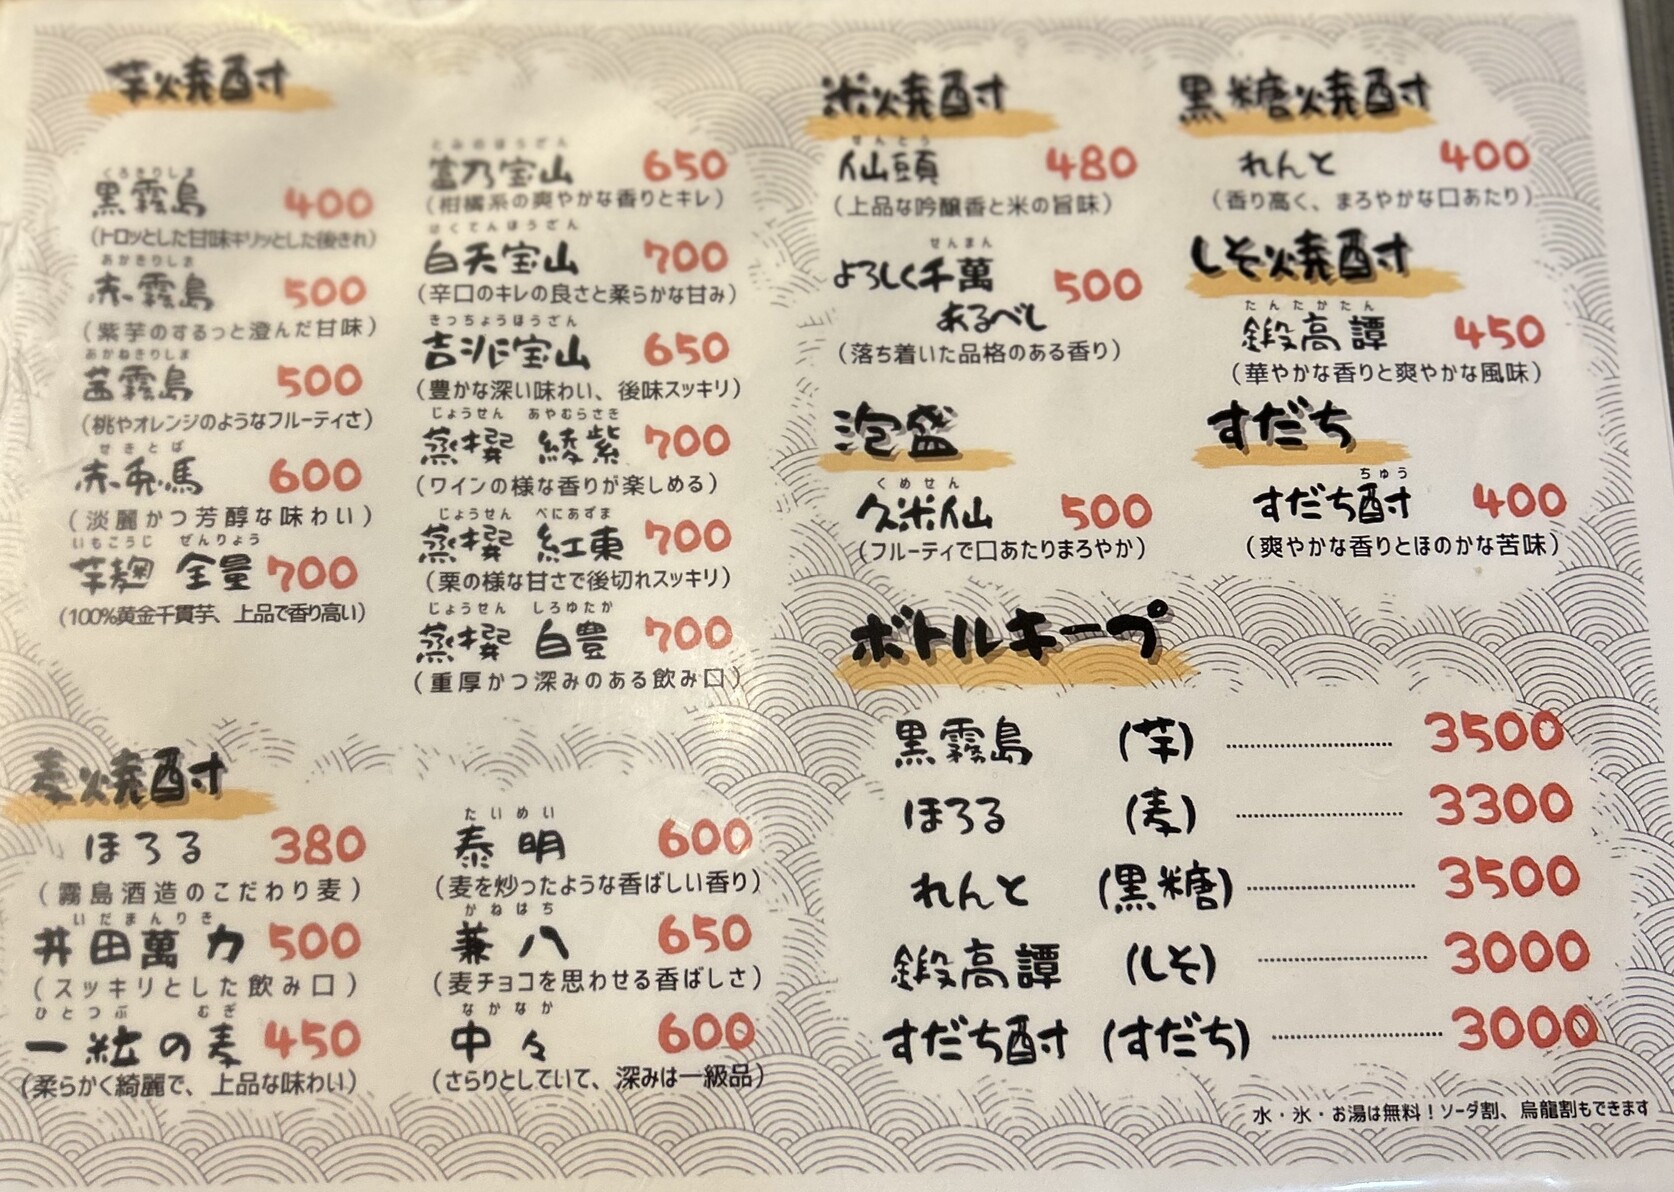 芋焼酎
くろきりしま
黒霧島 400
(トロッとした甘味キリッとした後きれ)
あかきりしま
赤霧島 500
(紫芋のするっと澄んだ甘味)
あかねきりしま
茜霧島 500
(桃やオレンジのようなフルーティさ)
せきとば
赤兎馬 600
(淡麗かつ芳醇な味わい)
いもこうじ ぜんりょう
芋麹 全量 700
(100%黄金千貫芋、上品で香り高い)
とみのほうざん
富乃宝山 650
(柑橘系の爽やかな香りとキレ)
はくてんほうざん
白天宝山 700
(辛口のキレの良さと柔らかな甘み)
きっちょうほうざん
吉兆宝山 650
(豊かな深い味わい、後味スッキリ)
じょうせん あやむらさき
蒸撰 綾紫 700
(ワインの様な香りが楽しめる)
じょうせん べにあずま
蒸撰 紅東 700
(栗の様な甘さで後切れスッキリ)
じょうせん しろゆたか
蒸撰 白豊 700
(重厚かつ深みのある飲み口)
麦焼酎
ほろる 380
(霧島酒造のこだわり麦)
いだまんりき
井田萬力 500
(スッキリとした飲み口)
ひとつぶ むぎ
一粒の麦 450
(柔らかく綺麗で、上品な味わい)
たいめい
泰明 600
(麦を炒ったような香ばしい香り)
かねはち
兼八 650
(麦チョコを思わせる香ばしさ)
なかなか
中々 600
(さらりとしていて、深みは一級品)
米焼酎
せんとう
仙頭 480
(上品な吟醸香と米の旨味)
せんまん
よろしく千萬 500
あるべし
(落ち着いた品格のある香り)
泡盛
くめせん
久米仙 500
(フルーティで口あたりまろやか)
黒糖焼酎
れんと 400
(香り高く、まろやかな口あたり)
しそ焼酎
たんたかたん
鍛高譚 450
(華やかな香りと爽やかな風味)
すだち
ちゅう
すだち酎 400
(爽やかな香りとほのかな苦味)
ボトルキープ
黒霧島 (芋) 3500
ほろる (麦) 3300
れんと (黒糖) 3500
鍛高譚 (しそ) 3000
すだち酎 (すだち) 3000
水・氷・お湯は無料！ソーダ割、烏龍割もできます